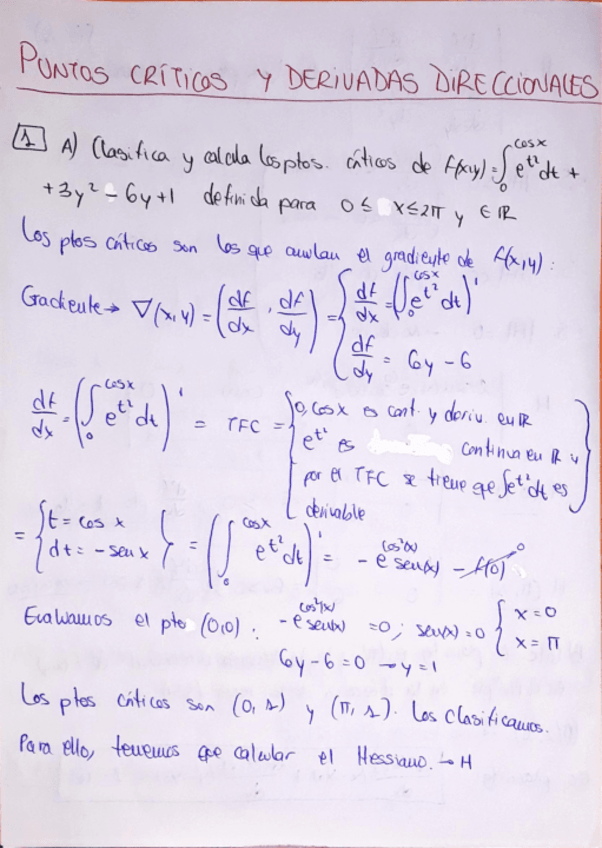 PUNTOS CRÍTICOS Y DERIVADAS DIRECCIONALES
1 A) Clasifica y calcula los ptos. críticos de f(x,y) = ∫₀^{cosx} e^{t²} dt +
+3y² - 6y+1 definida para 0 ≤ x ≤ 2π y ∈ ℝ
Los ptos críticos son los que anulan el gradiente de f(x,y).
Gradiente → ∇(x,y) = (df/dx, df/dy) = { df/dx = (∫₀^{cosx} e^{t²} dt)'
df/dy = 6y - 6
df/dx = (∫₀^{cosx} e^{t²} dt)' = TFC = { 0, cos x es cont. y deriv. en ℝ
e^{t²} es continua en ℝ y
por el TFC se tiene que ∫e^{t²}dt es
derivable
= { t = cos x
dt = - sen x } = (∫₀^{cosx} e^{t²} dt)' = - e^{cos²(x)} sen(x) - f(0) 0
Evaluamos el pto (0,0): -e^{cos²(x)} sen(x) = 0; sen(x) = 0 { x = 0
x = π
6y - 6 = 0 → y = 1
Los ptos críticos son (0, 1) y (π, 1). Los clasificamos.
Para ello, tenemos que calcular el Hessiano. → H